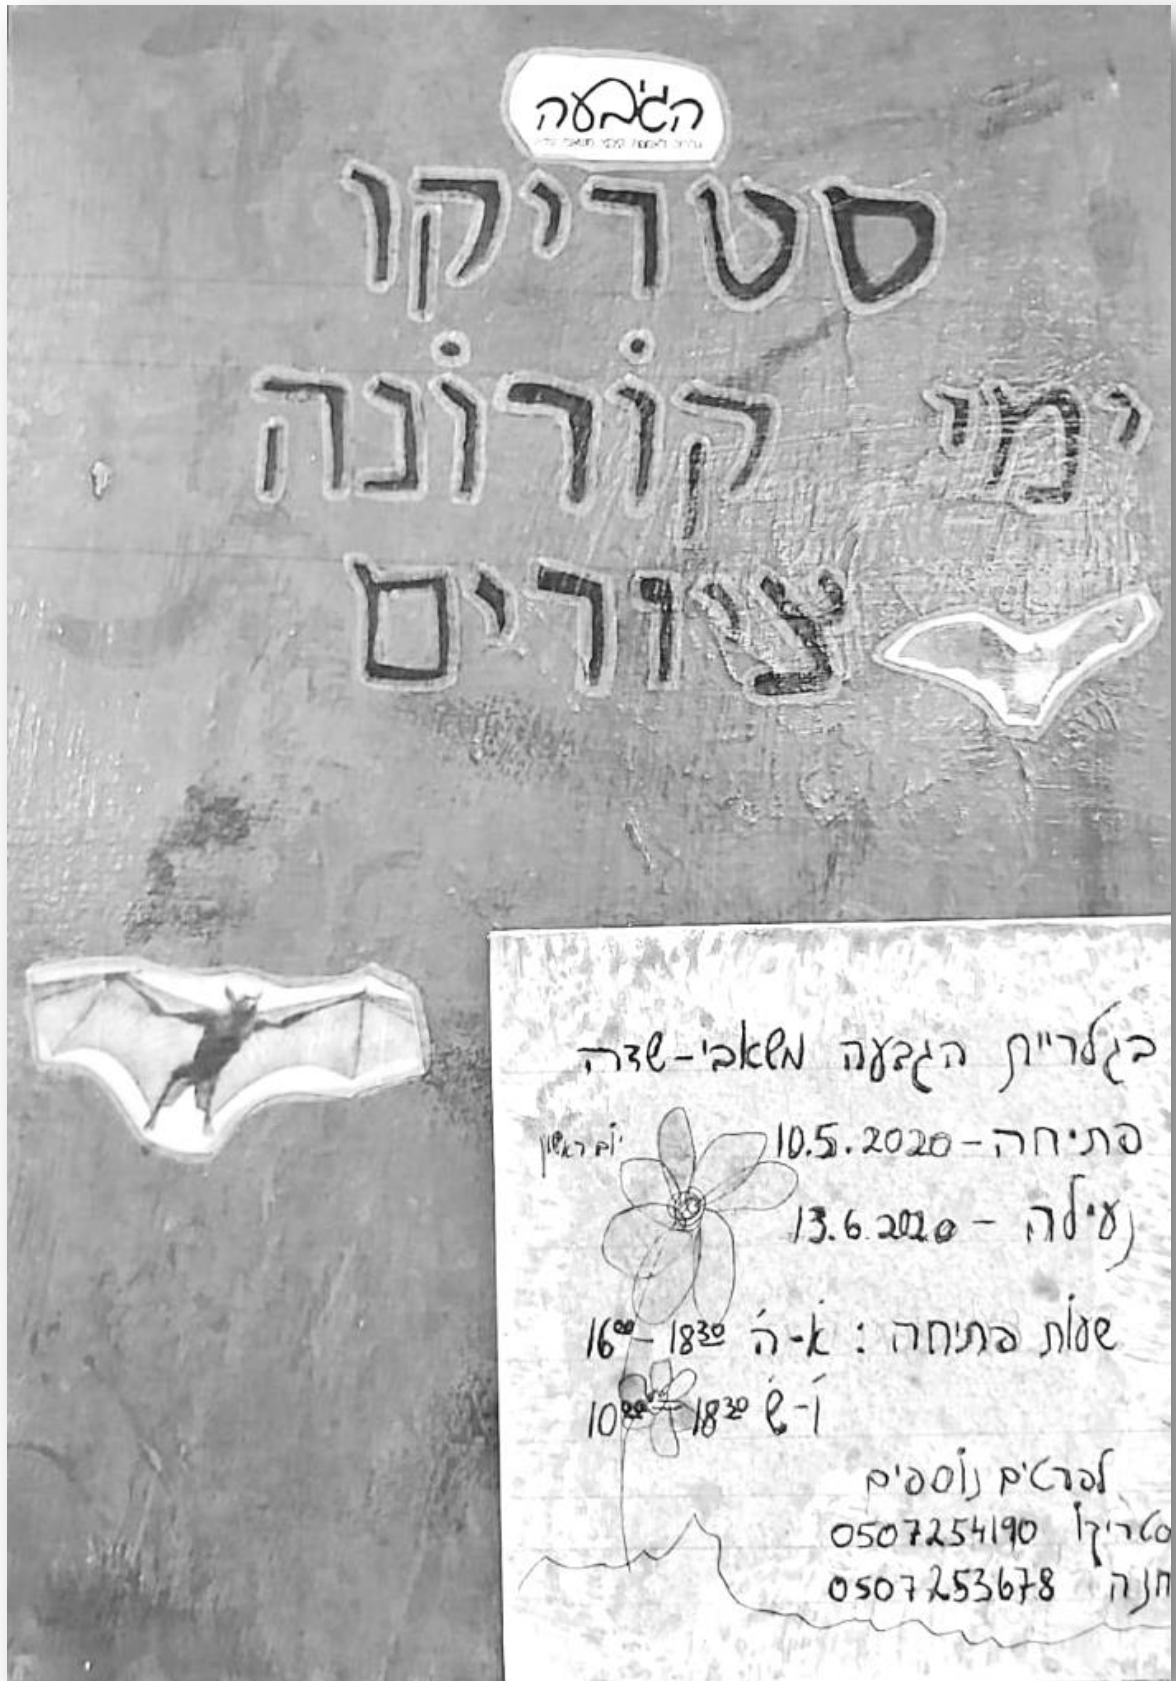 הגבעה
סטריקו
ימי קוֹרוֹנה
ציורים
בגלריית הגבעה משאבי-שדה
פתיחה - 10.5.2020 יום ראשון
נעילה - 13.6.2020
שעות פתיחה : א'-ה' 16:00-18:30
ו'-ש' 10:00-18:30
לפרטים נוספים
סטריקו 0507254190
חנה 0507253678